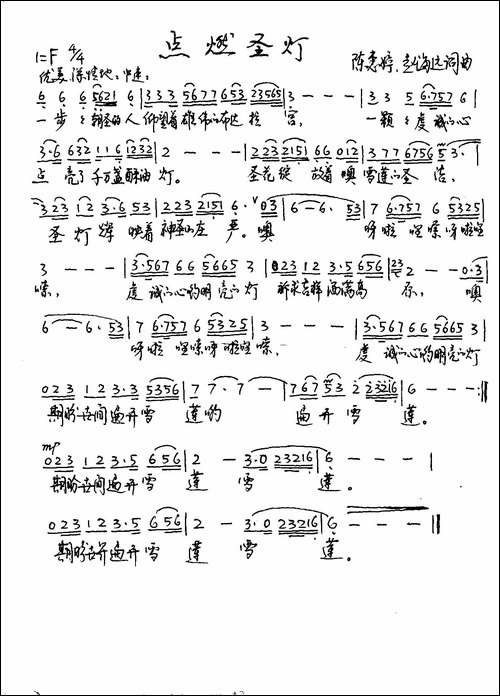 点燃圣灯
1=F 4/4
优美 深情地 中速
词曲
6 6 6 5621 6 | 3 3 3 5 6 7 7 6 5 3 23565 | 3 - - - | 3 3 5 6·757 6 |
一步々朝圣的人仰望着雄伟的布达拉宫， 一颗々虔诚的心
3·6 632 1 1 6 1232 | 2 - - - | 2 23 2151 6 6 012 | 3 7 7 6756 5 3· |
点亮了千万盏酥油灯。 圣花绽放着噢雪莲的圣洁，
323 12 3·6 53 | 223 2151 6· 03 | 6 - 6· 53 | 7 6·757 6 5325 |
圣灯辉映着神圣的庄严。噢 呀啦嗦呀啦
3 - - - | 3·567 6 6 5665 3 | 023 12 3·5 656 | 23 2 - - 0·3 |
嗦， 虔诚的心的明亮的灯 祈求吉祥洒满高原， 噢
6 - 6· 53 | 7 6·757 6 5325 | 3 - - - | 3·567 6 6 5665 3 |
呀啦嗦呀啦嗦， 虔诚的心的明亮的灯
023 12 3·3 5356 | 7 7· 7 - | 767 53 2 23216 | 6 - - - :||
期盼世间遍开雪莲哟 遍开雪莲。
mp
023 12 3·5 656 | 2 - 3·0 23216 | 6 - - - |
期盼世间遍开雪莲 雪莲。
023 12 3·5 656 | 2 - 3·0 23216 | 6 - - - ||
期盼世界遍开雪莲 雪莲。